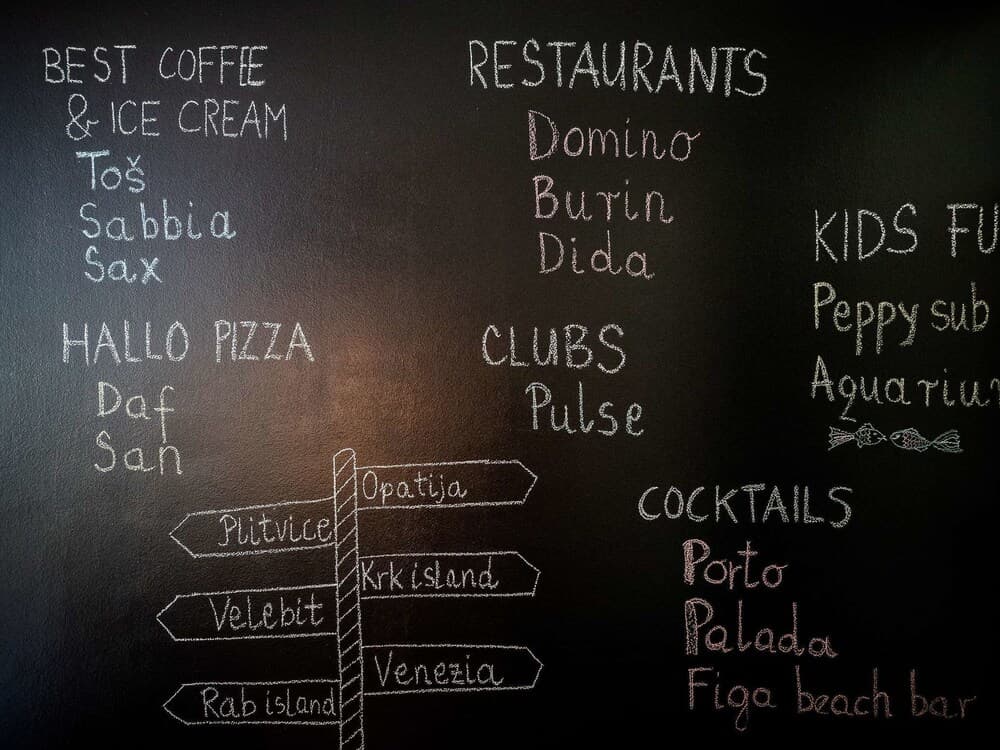 BEST COFFEE
& ICE CREAM
Toš
Sabbia
Sax
HALLO PIZZA
Daf
San
RESTAURANTS
Domino
Burin
Dida
CLUBS
Pulse
KIDS FU
Peppy sub
Aquariu
COCKTAILS
Porto
Palada
Figa beach bar
Opatija
Plitvice
Krk island
Velebit
Venezia
Rab island